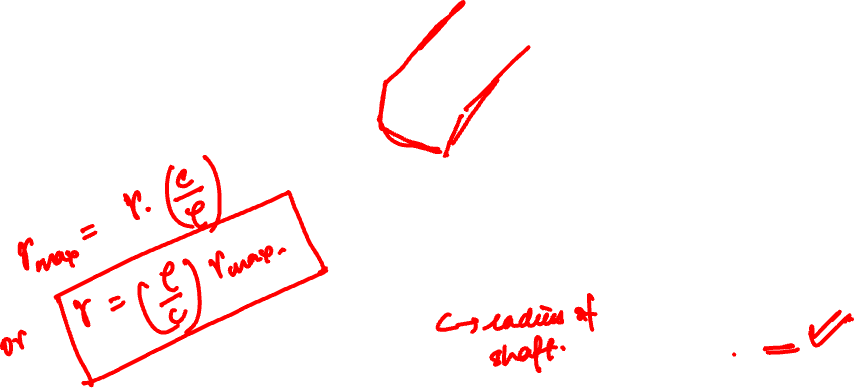 γmax = γ. (c/ρ)
or γ = (ρ/c) γmax.
c → radius of
shaft.